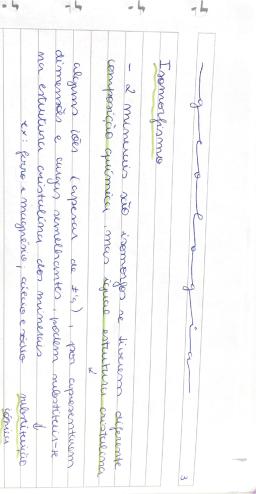 geologia 3
Isomorfismo
- 2 minerais são isomorfos se tiverem diferente
composição química, mas igual estrutura cristalina
alguns iões (apesar de ≠'s), por apresentarem
dimensões e cargas semelhantes, podem substituir-se
na estrutura cristalina dos minerais
ex: ferro e magnésio, cálcio e sódio substituição
iónica